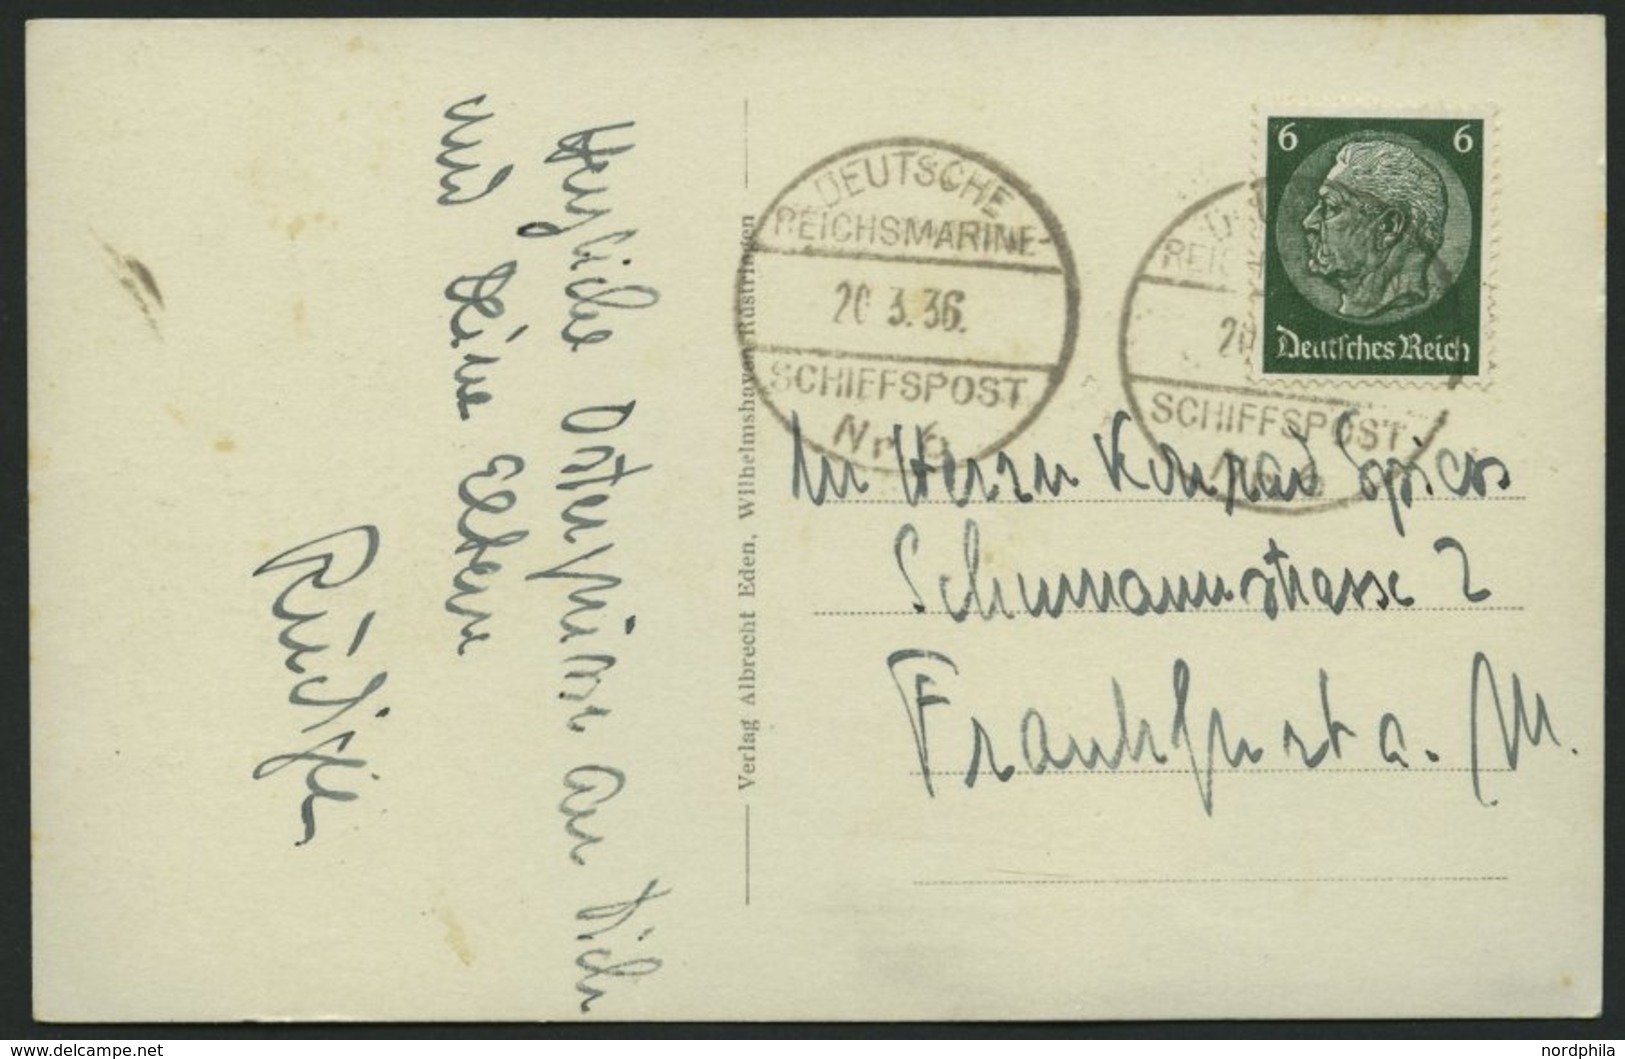 Herzliche Ostergrüsse an Dich
und Deine Eltern
Rüdiger
Verlag Albrecht Eden, Wilhelmshaven-Rüstringen
DEUTSCHE
REICHSMARINE
20.3.36.
SCHIFFSPOST
Nr 6
6 6
Deutsches Reich
REIC
20
SCHIFFSPOST
An Herrn Konrad Spiess
Schumannstrasse 2
Frankfurt a. M.
delcampe.net
nordphila